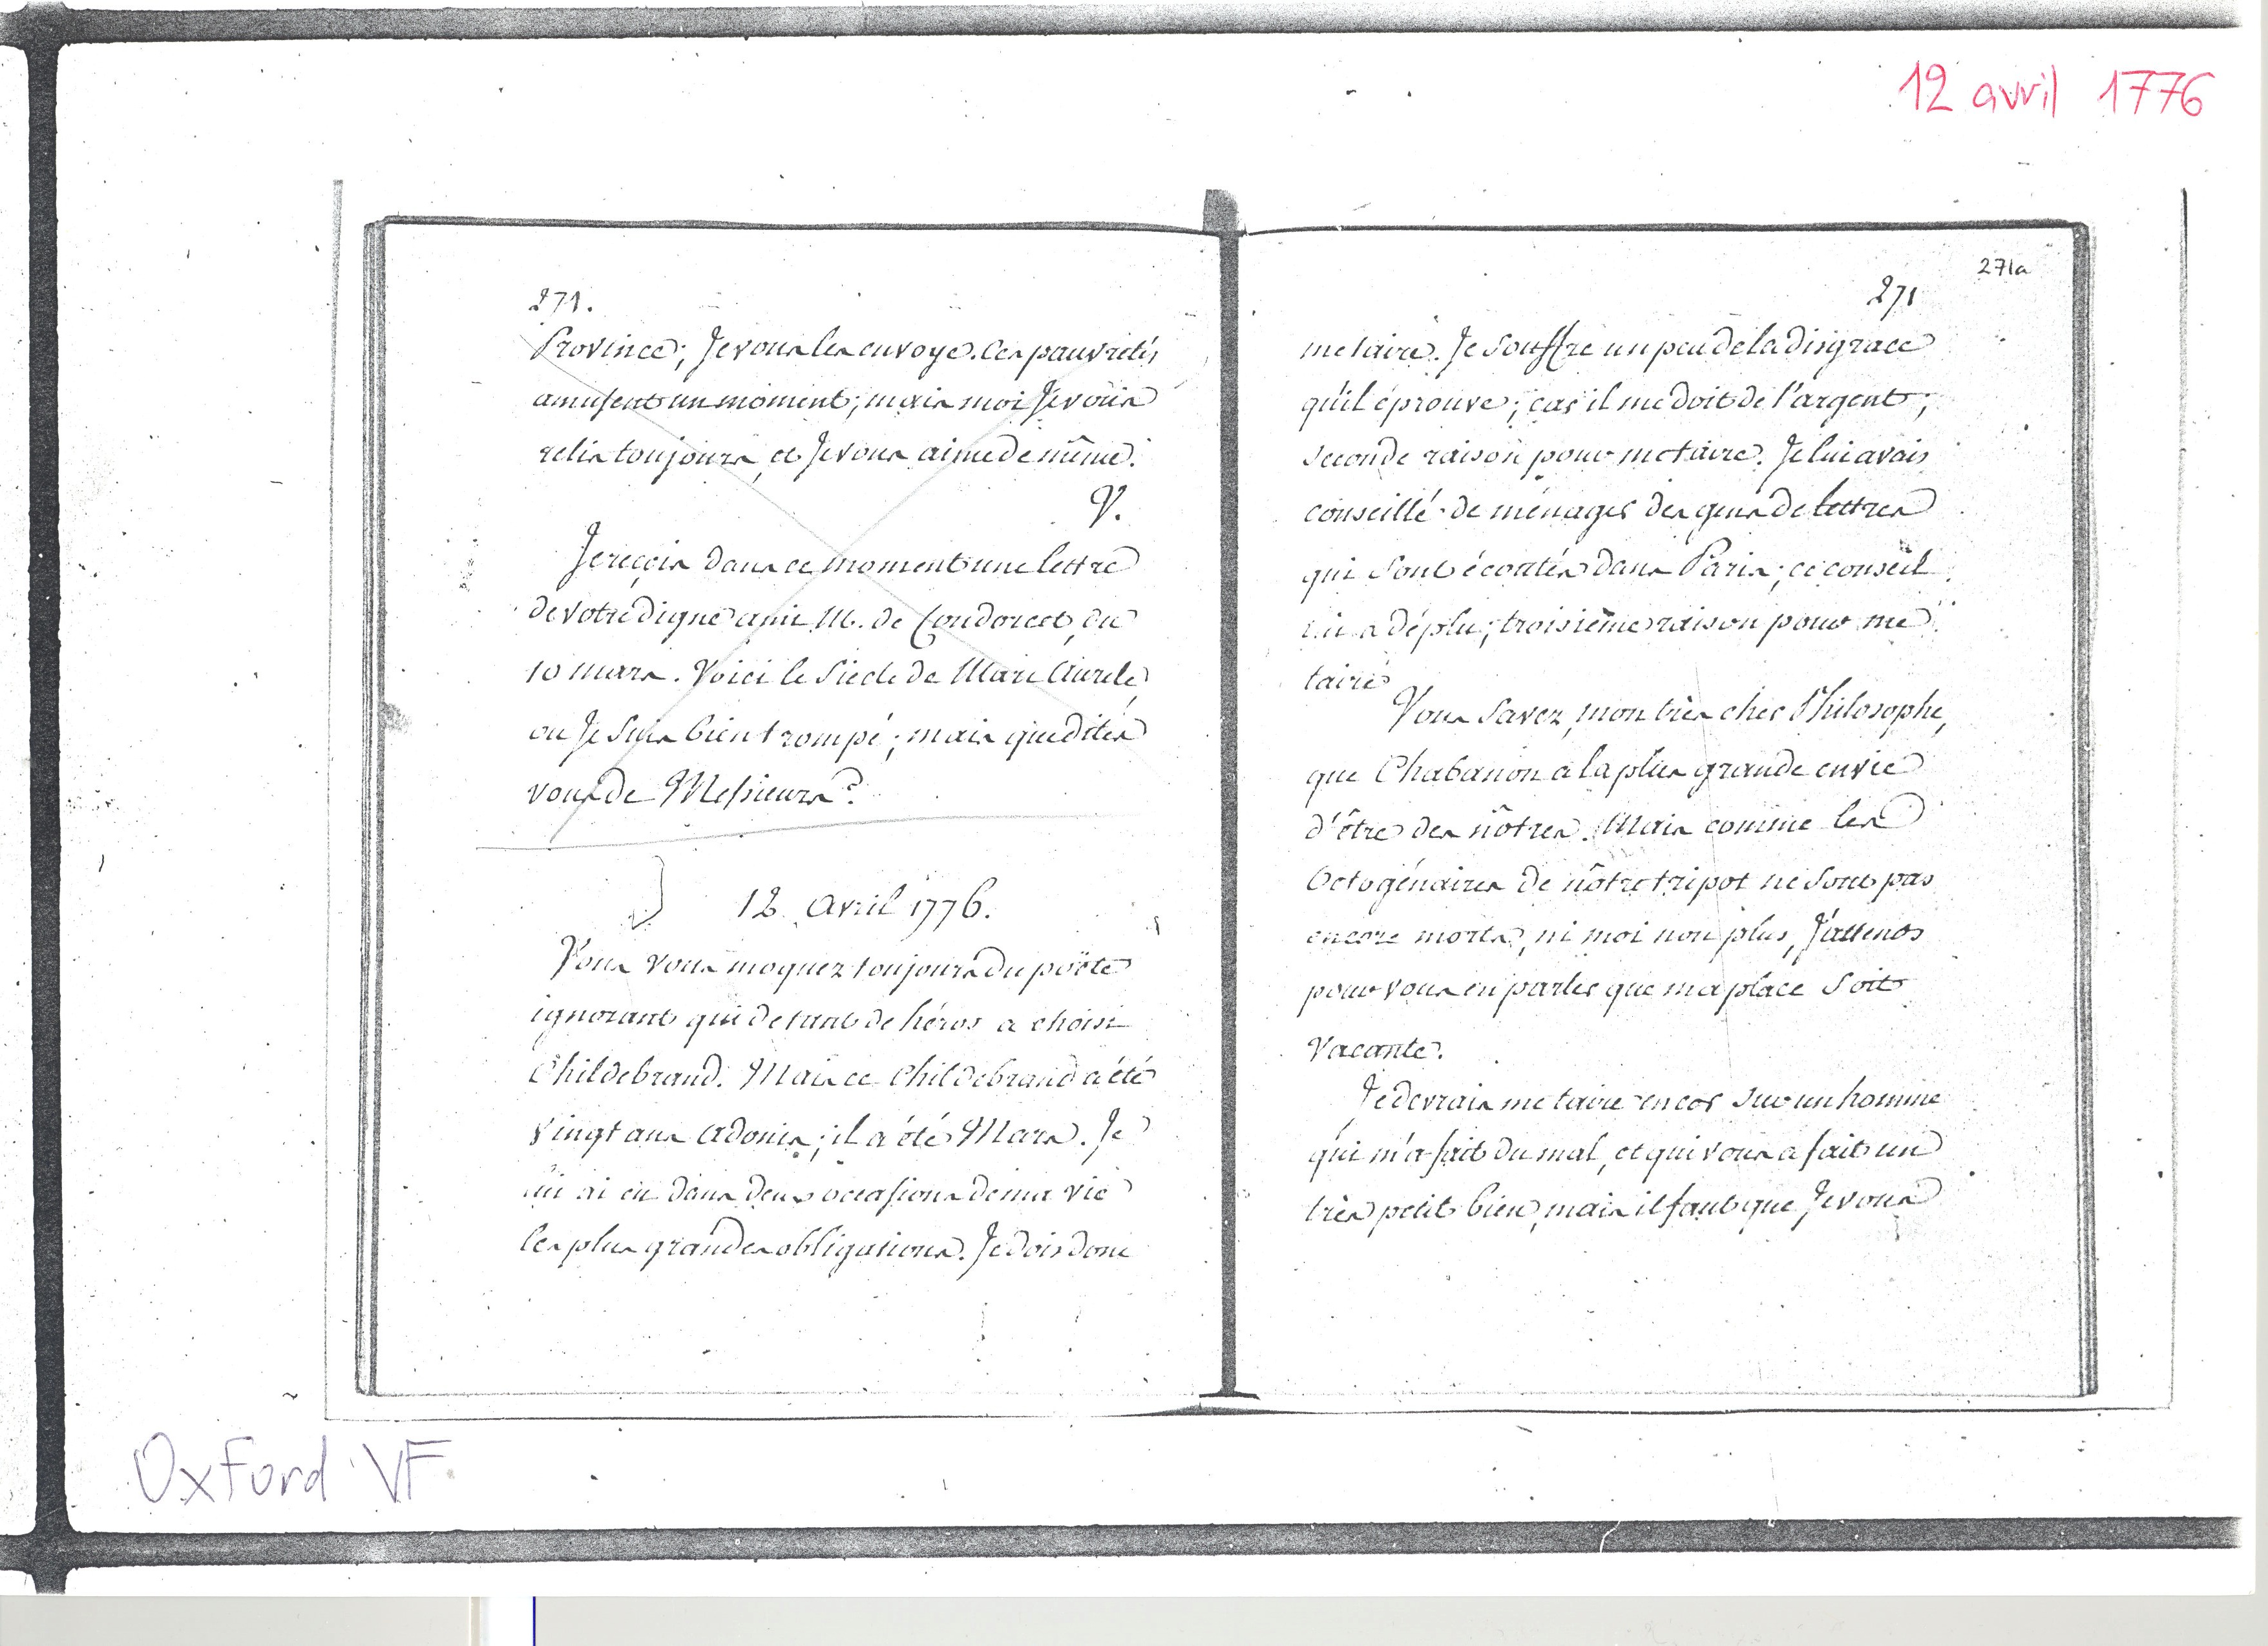 12 avril 1776
271.
Province; Je vous les envoye. Ces pauvretés
amusent un moment; mais moi Je vous
relis toujours, et Je vous aime de même.
V.
Je reçois dans ce moment une lettre
de votre digne ami M. de Condorcet, du
10 mars. Voici le Siecle de Marc Aurele,
ou Je suis bien trompé; mais que dites
vous de Messieurs?
12. avril 1776.
Vous vous moquez toujours du poëte
ignorant qui de tant de héros a choisi
Childebrand. Mais ce Childebrand a été
vingt ans Adonis; il a été Mars. Je
lui ai eu dans deux occasions de ma vie
les plus grandes obligations. Je dois donc
271a
271
me taire. Je souffre un peu de la disgrace
qu'il éprouve; car il me doit de l'argent;
seconde raison pour me taire. Je lui avais
conseillé de ménager des gens de lettres
qui sont écoutés dans Paris; ce conseil
lui a déplu; troisième raison pour me
taire
Vous savez, mon très cher Philosophe,
que Chabanon a la plus grande envie
d'être des nôtres. Mais comme les
Octogénaires de nôtre tripot ne sont pas
encore morts, ni moi non plus, J'attends
pour vous en parler que ma place soit
vacante.
Je devrais me taire encor sur un homme
qui m'a fait du mal, et qui vous a fait un
très petit bien, mais il faut que Je vous
Oxford VF